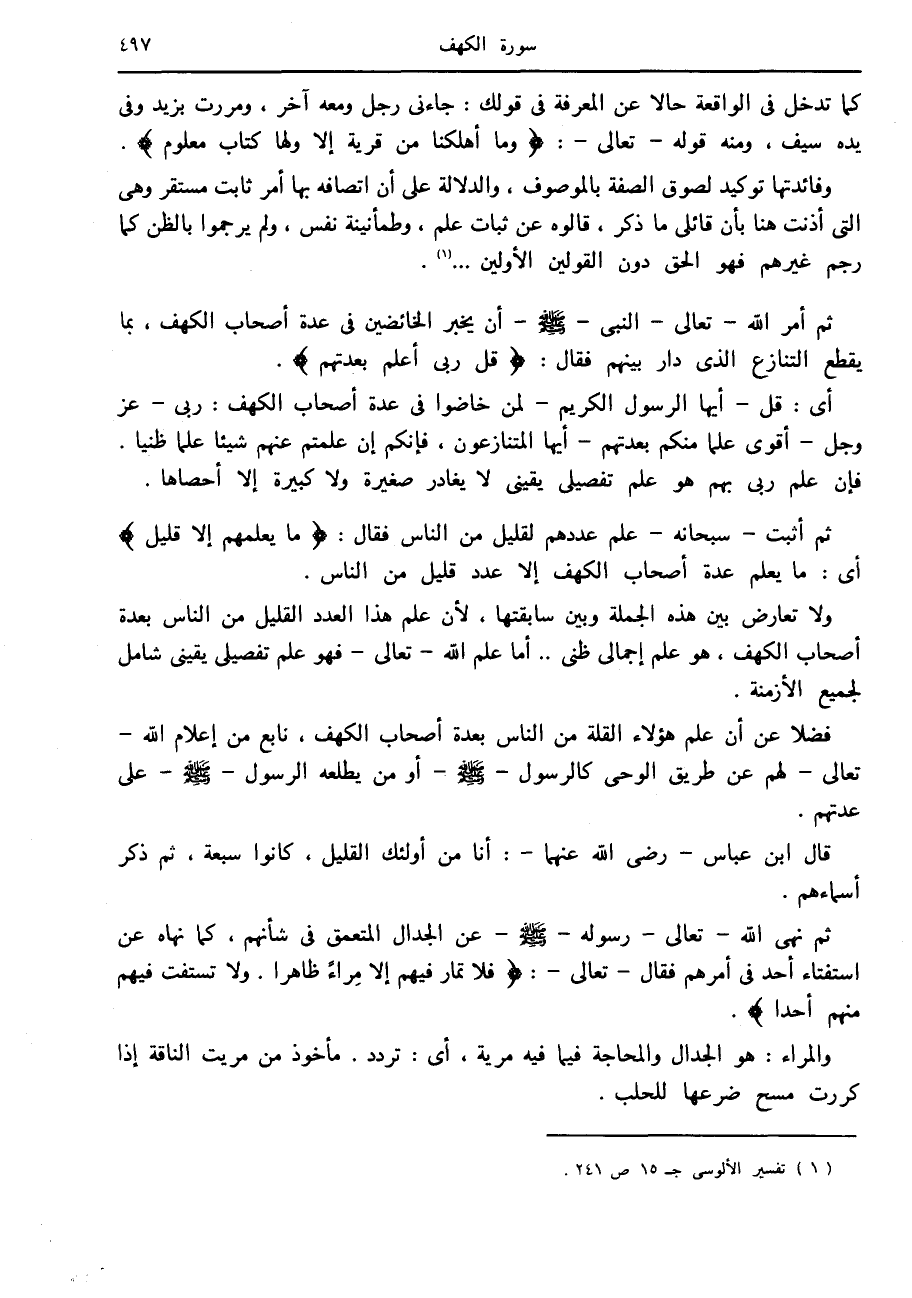 سورة الكهف ٤٩٧
كما تدخل فى الواقعة حالا عن المعرفة فى قولك : جاءنى رجل ومعه آخر ، ومررت بزيد وفى
يده سيف ، ومنه قوله – تعالى – : ﴿ وما أهلكنا من قرية إلا ولها كتاب معلوم ﴾ .
وفائدتها توكيد لصوق الصفة بالموصوف ، والدلالة على أن اتصافه بها أمر ثابت مستقر وهى
التى أذنت هنا بأن قائلى ما ذكر ، قالوه عن ثبات علم ، وطمأنينة نفس ، ولم يرجموا بالظن كما
رجم غيرهم فهو الحق دون القولين الأولين ...(١) .
ثم أمر الله – تعالى – النبى – ﷺ – أن يخبر الخائضين فى عدة أصحاب الكهف ، بما
يقطع التنازع الذى دار بينهم فقال : ﴿ قل ربى أعلم بعدتهم ﴾ .
أى : قل – أيها الرسول الكريم – لمن خاضوا فى عدة أصحاب الكهف : ربى – عز
وجل – أقوى علما منكم بعدتهم – أيها المتنازعون ، فإنكم إن علمتم عنهم شيئا علما ظنيا .
فإن علم ربى بهم هو علم تفصيلى يقينى لا يغادر صغيرة ولا كبيرة إلا أحصاها .
ثم أثبت – سبحانه – علم عددهم لقليل من الناس فقال : ﴿ ما يعلمهم إلا قليل ﴾
أى : ما يعلم عدة أصحاب الكهف إلا عدد قليل من الناس .
ولا تعارض بين هذه الجملة وبين سابقتها ، لأن علم هذا العدد القليل من الناس بعدة
أصحاب الكهف ، هو علم إجمالى ظنى .. أما علم الله – تعالى – فهو علم تفصيلى يقينى شامل
لجميع الأزمنة .
فضلا عن أن علم هؤلاء القلة من الناس بعدة أصحاب الكهف ، نابع من إعلام الله –
تعالى – لهم عن طريق الوحى كالرسول – ﷺ – أو من يطلعه الرسول – ﷺ – على
عدتهم .
قال ابن عباس – رضى الله عنهما – : أنا من أولئك القليل ، كانوا سبعة ، ثم ذكر
أسماءهم .
ثم نهى الله – تعالى – رسوله – ﷺ – عن الجدال المتعمق فى شأنهم ، كما نهاه عن
استفتاء أحد فى أمرهم فقال – تعالى – : ﴿ فلا تمار فيهم إلا مِراءً ظاهرا . ولا تستفت فيهم
منهم أحدا ﴾ .
والمراء : هو الجدال والمحاجة فيما فيه مرية ، أى : تردد . مأخوذ من مريت الناقة إذا
كررت مسح ضرعها للحلب .
( ١ ) تفسير الألوسى جـ ١٥ ص ٢٤١ .